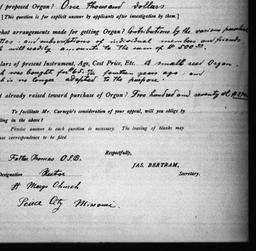 of proposed Organ? One thousand dollars
[This question is for explicit answer by applicants after investigation by them.]
What arrangements made for getting Organ? Contributions by the various
and subscriptions of individual members and friends
will readily amounts to the sum of $500.00.
of present Instrument, Age, Cost Price, Etc. A small reed Organ.
was bought for $65. fourteen years ago and
is no longer adapted to the purpose.
already raised toward purchase of Organ? Five hundred and seventy
To facilitate Mr. Carnegie's consideration of your appeal, will you oblige by
ing in the above?
Please answer to each question is necessary. The leaving of blanks may
correspondence to be filed
Respectfully,
Father Thomas O.S.B.
JAS. BERTRAM,
Rector
Secretary.
St Marys Church
City Missouri.